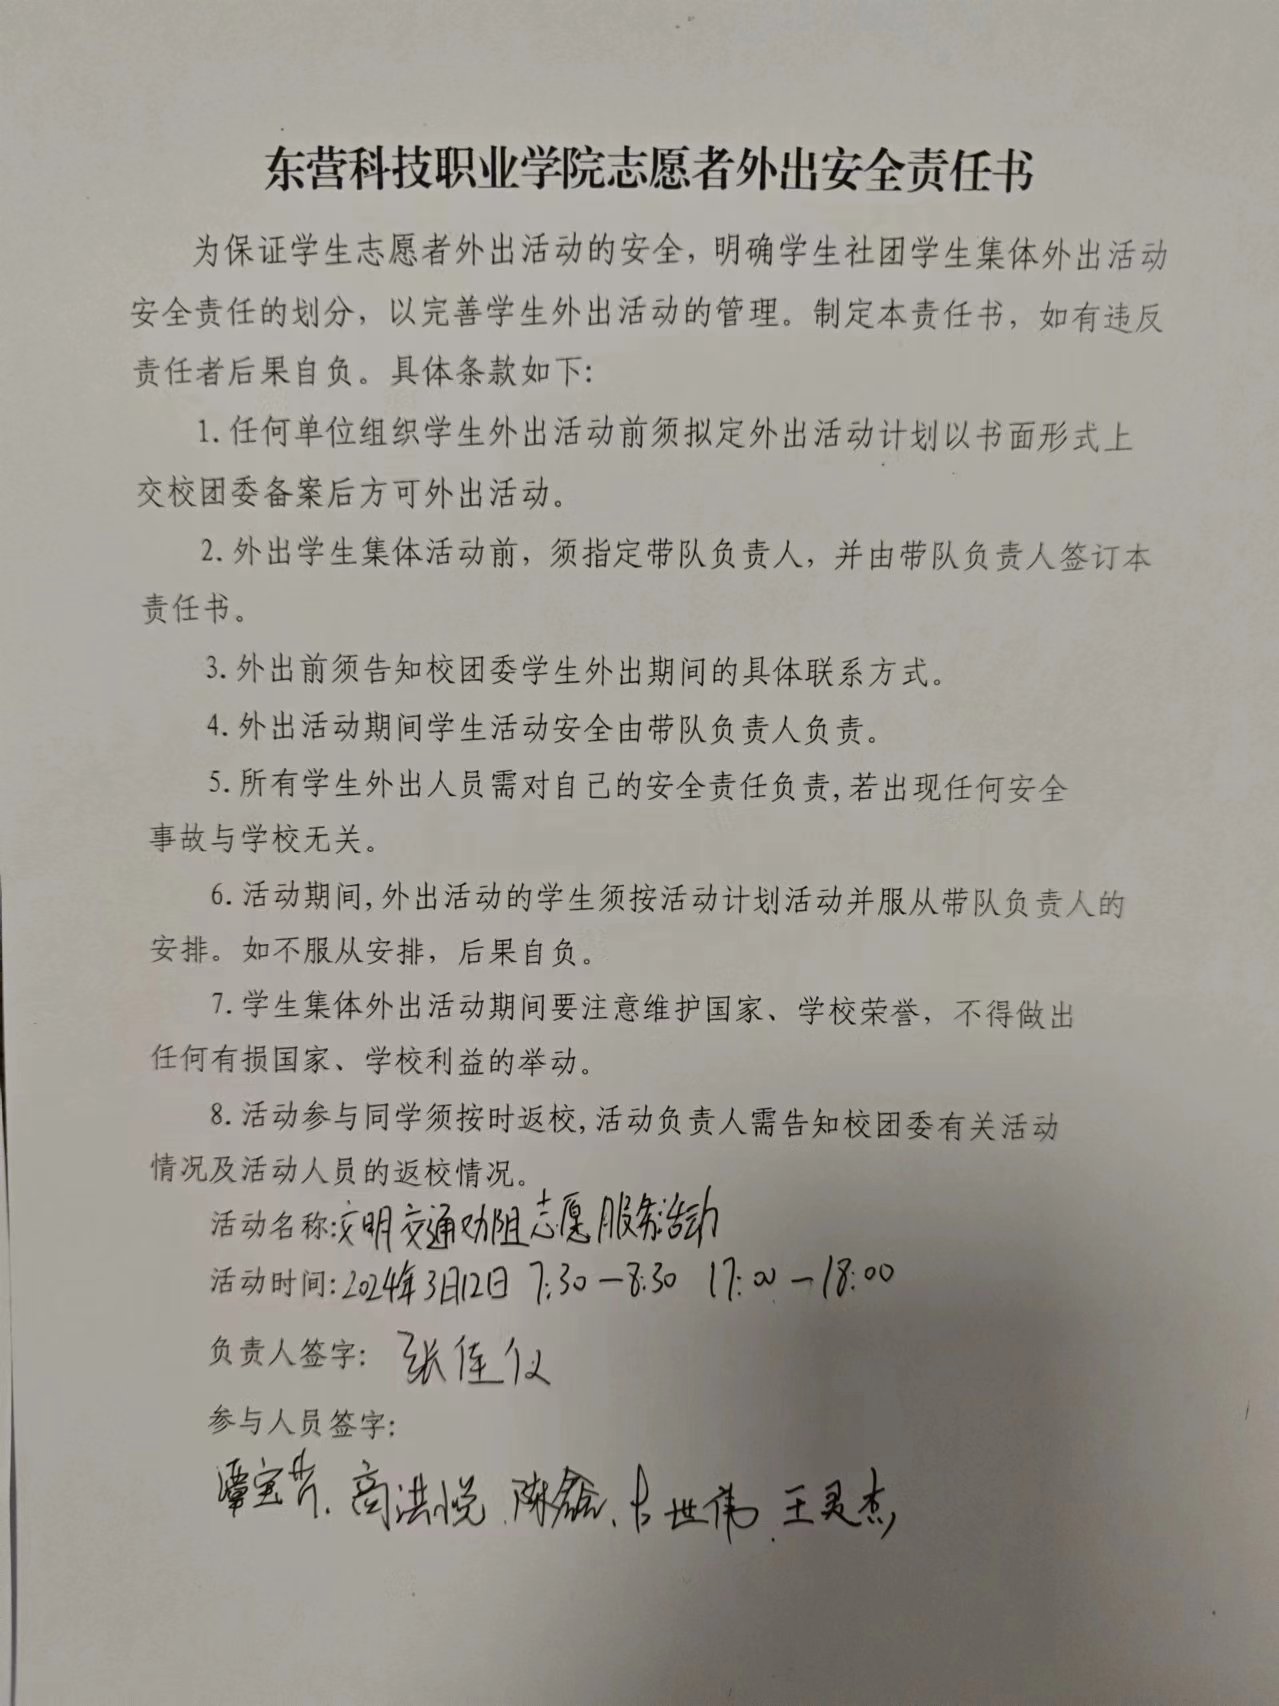 东营科技职业学院志愿者外出安全责任书
为保证学生志愿者外出活动的安全，明确学生社团学生集体外出活动
安全责任的划分，以完善学生外出活动的管理。制定本责任书，如有违反
责任者后果自负。具体条款如下：
1.任何单位组织学生外出活动前须拟定外出活动计划以书面形式上
交校团委备案后方可外出活动。
2.外出学生集体活动前，须指定带队负责人，并由带队负责人签订本
责任书。
3.外出前须告知校团委学生外出期间的具体联系方式。
4.外出活动期间学生活动安全由带队负责人负责。
5.所有学生外出人员需对自己的安全责任负责,若出现任何安全
事故与学校无关。
6.活动期间,外出活动的学生须按活动计划活动并服从带队负责人的
安排。如不服从安排，后果自负。
7.学生集体外出活动期间要注意维护国家、学校荣誉，不得做出
任何有损国家、学校利益的举动。
8.活动参与同学须按时返校,活动负责人需告知校团委有关活动
情况及活动人员的返校情况。
活动名称:文明交通劝阻志愿服务活动
活动时间:2024年3月12日 7:30—8:30 17:00—18:00
负责人签字: 张佳仪
参与人员签字:
商洪悦 世伟 王灵杰